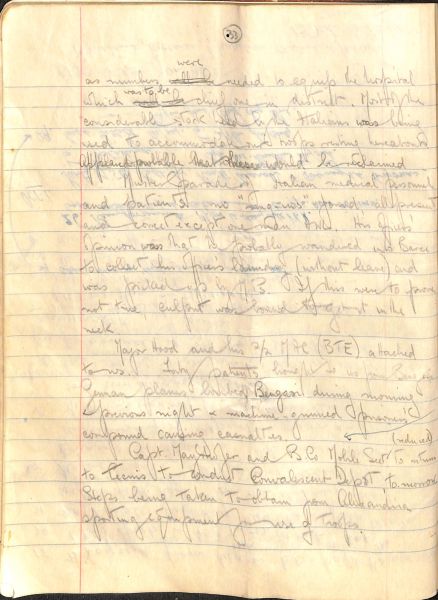 were
as numbers needed to equip the hospital
which was to be chief one in district. Most of the
considerable stock held by the Italians was being
used to accommodate our troops
Appeared probable that these would be reclaimed
Muster parade of Italian medical personnel
and patients no "ring-ins" all present
and correct except one man A.W.L. His officer's
opinion was that he probably wandered into Barce
to collect his officer's laundry (without leave) and
was picked up by M.P.s. If this were to prove
not true, culprit was bound to get it in the
neck.
Major Hood and his 3/2 (BTE) attached
to us. patients brought to us from
German planes bombed Bengasi during morning
& previous night & machine-gunned prisoners'
compound causing casualties. (induced)
Capt. and B Co Mobile Sect to return
to to conduct Convalescent Depot tomorrow
Steps being taken to obtain from Alexandria
sporting equipment for use of troops.